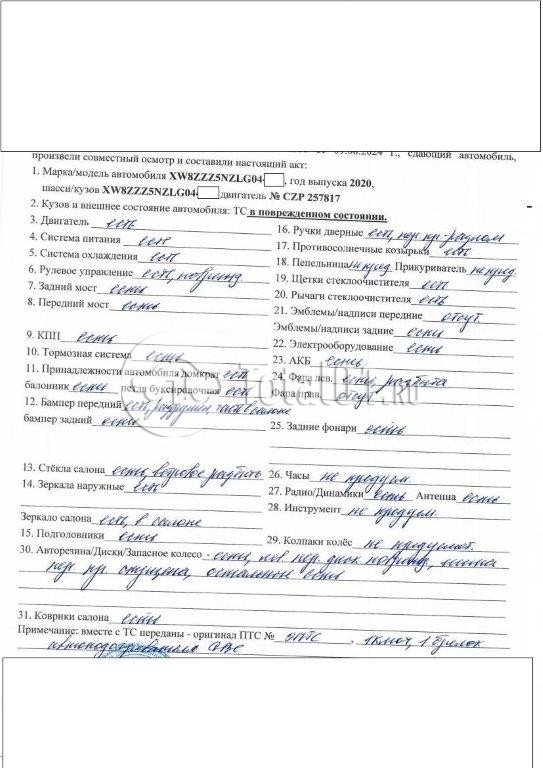 09.08.2024 г., сдающий автомобиль,
произвели совместный осмотр и составили настоящий акт:
1. Марка/модель автомобиля XW8ZZZ5NZLG04 , год выпуска 2020,
шасси/кузов XW8ZZZ5NZLG04 двигатель № CZP 257817
2. Кузов и внешнее состояние автомобиля: ТС в поврежденном состоянии.
3. Двигатель есть
4. Система питания есть
5. Система охлаждения есть
6. Рулевое управление есть, поврежд.
7. Задний мост есть
8. Передний мост есть
9. КПП есть
10. Тормозная система есть
11. Принадлежности автомобиля домкрат есть
балонник есть петля буксировочная есть
12. Бампер передний есть, разрушен, части в салоне
бампер задний есть
13. Стёкла салона есть, ветровое разбито
14. Зеркала наружные есть
Зеркало салона есть, в салоне
15. Подголовники есть
16. Ручки дверные есть, пер. пр. - разлом
17. Противосолнечные козырьки есть
18. Пепельница не прид. Прикуриватель не прид.
19. Щетки стеклоочистителя есть
20. Рычаги стеклоочистителя есть
21. Эмблемы/надписи передние отсут.
Эмблемы/надписи задние есть
22. Электрооборудование есть
23. АКБ есть
24. Фара лев. есть, разбита
Фара прав. отсут.
25. Задние фонари есть
26. Часы не предусм.
27. Радио/Динамики есть Антенна есть
28. Инструмент не предусм.
29. Колпаки колёс не предусмот.
30. Авторезина/Диски/Запасное колесо - есть, лев. пер. диск поврежд., шина
пер. пр. спущена, остальное есть
31. Коврики салона есть
Примечание: вместе с ТС переданы - оригинал ПТС № ЭПТС , 1 ключ, 1 брелок
TotalOut.RU